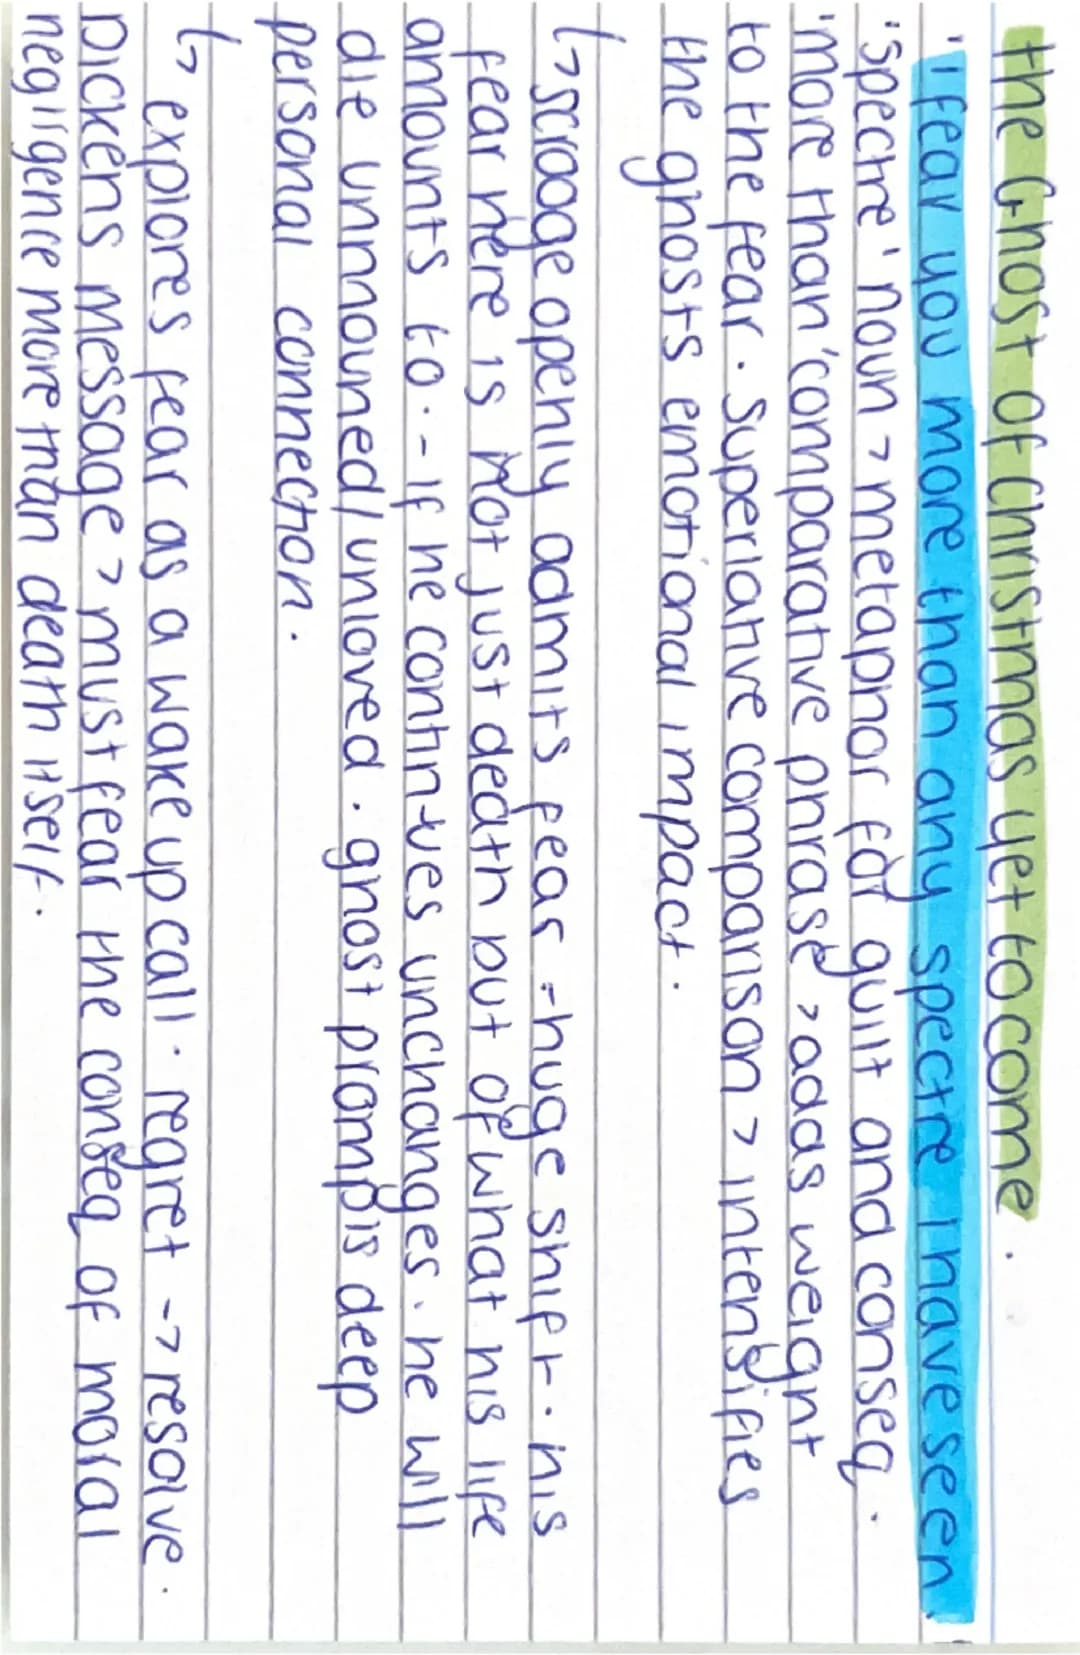 the Ghost of Christmas yet to come.
"I fear you more than any spectre I have seen"
'spectre' noun > metaphor for guilt and conseq.
'more than' comparative phrase > adds weight
to the fear. Superlative comparison > intensifies
the ghosts emotional impact.
↳ scrooge openly admits fear - huge shift. his
fear here is not just death but of what his life
amounts to. - If he continues unchanges. he will
die unmourned/unloved. ghost prompts deep
personal connection.
↳ explores fear as a wake up call. regret -> resolve.
Dickens message > must fear the conseq of moral
negligence more than death itself.